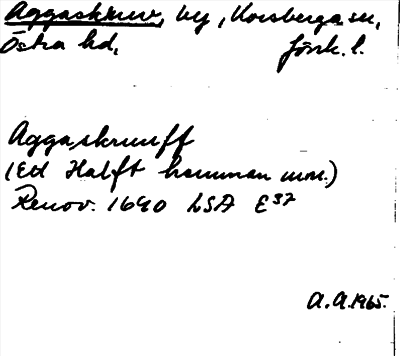 Aggaskruv, by, Korsberga sn,
Östra hd, Jönk. l.
Aggaskruuff
(Ett Halft hemman mm.)
Renov. 1690 LSA E37
A.A. 1965.